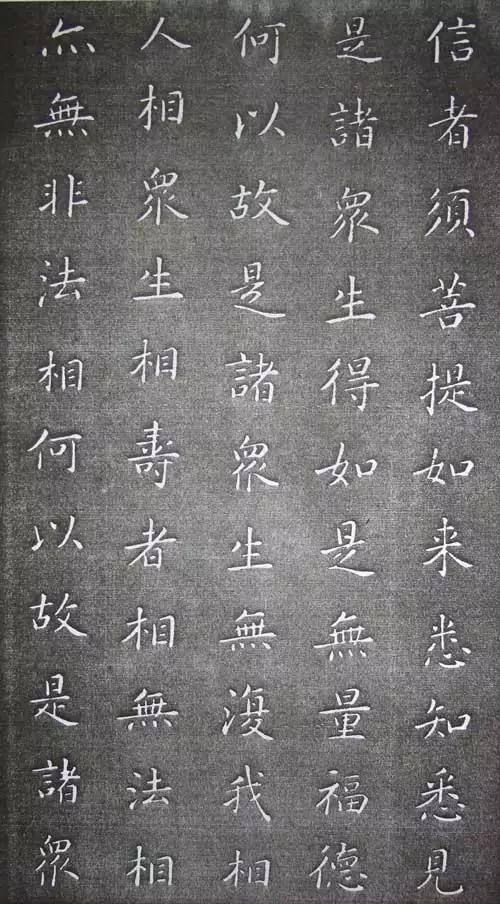 信者須菩提如来悉知悉見
是諸衆生得如是無量福德
何以故是諸衆生無復我相
人相衆生相壽者相無法相
亦無非法相何以故是諸衆